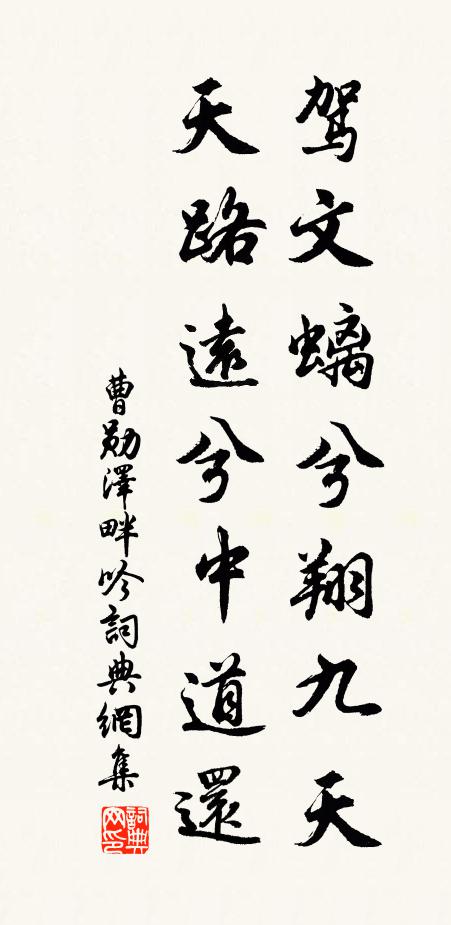 驾文螭兮翔九天
天路遠兮中道還
曹勛澤畔吟詞典網集
詞典网印